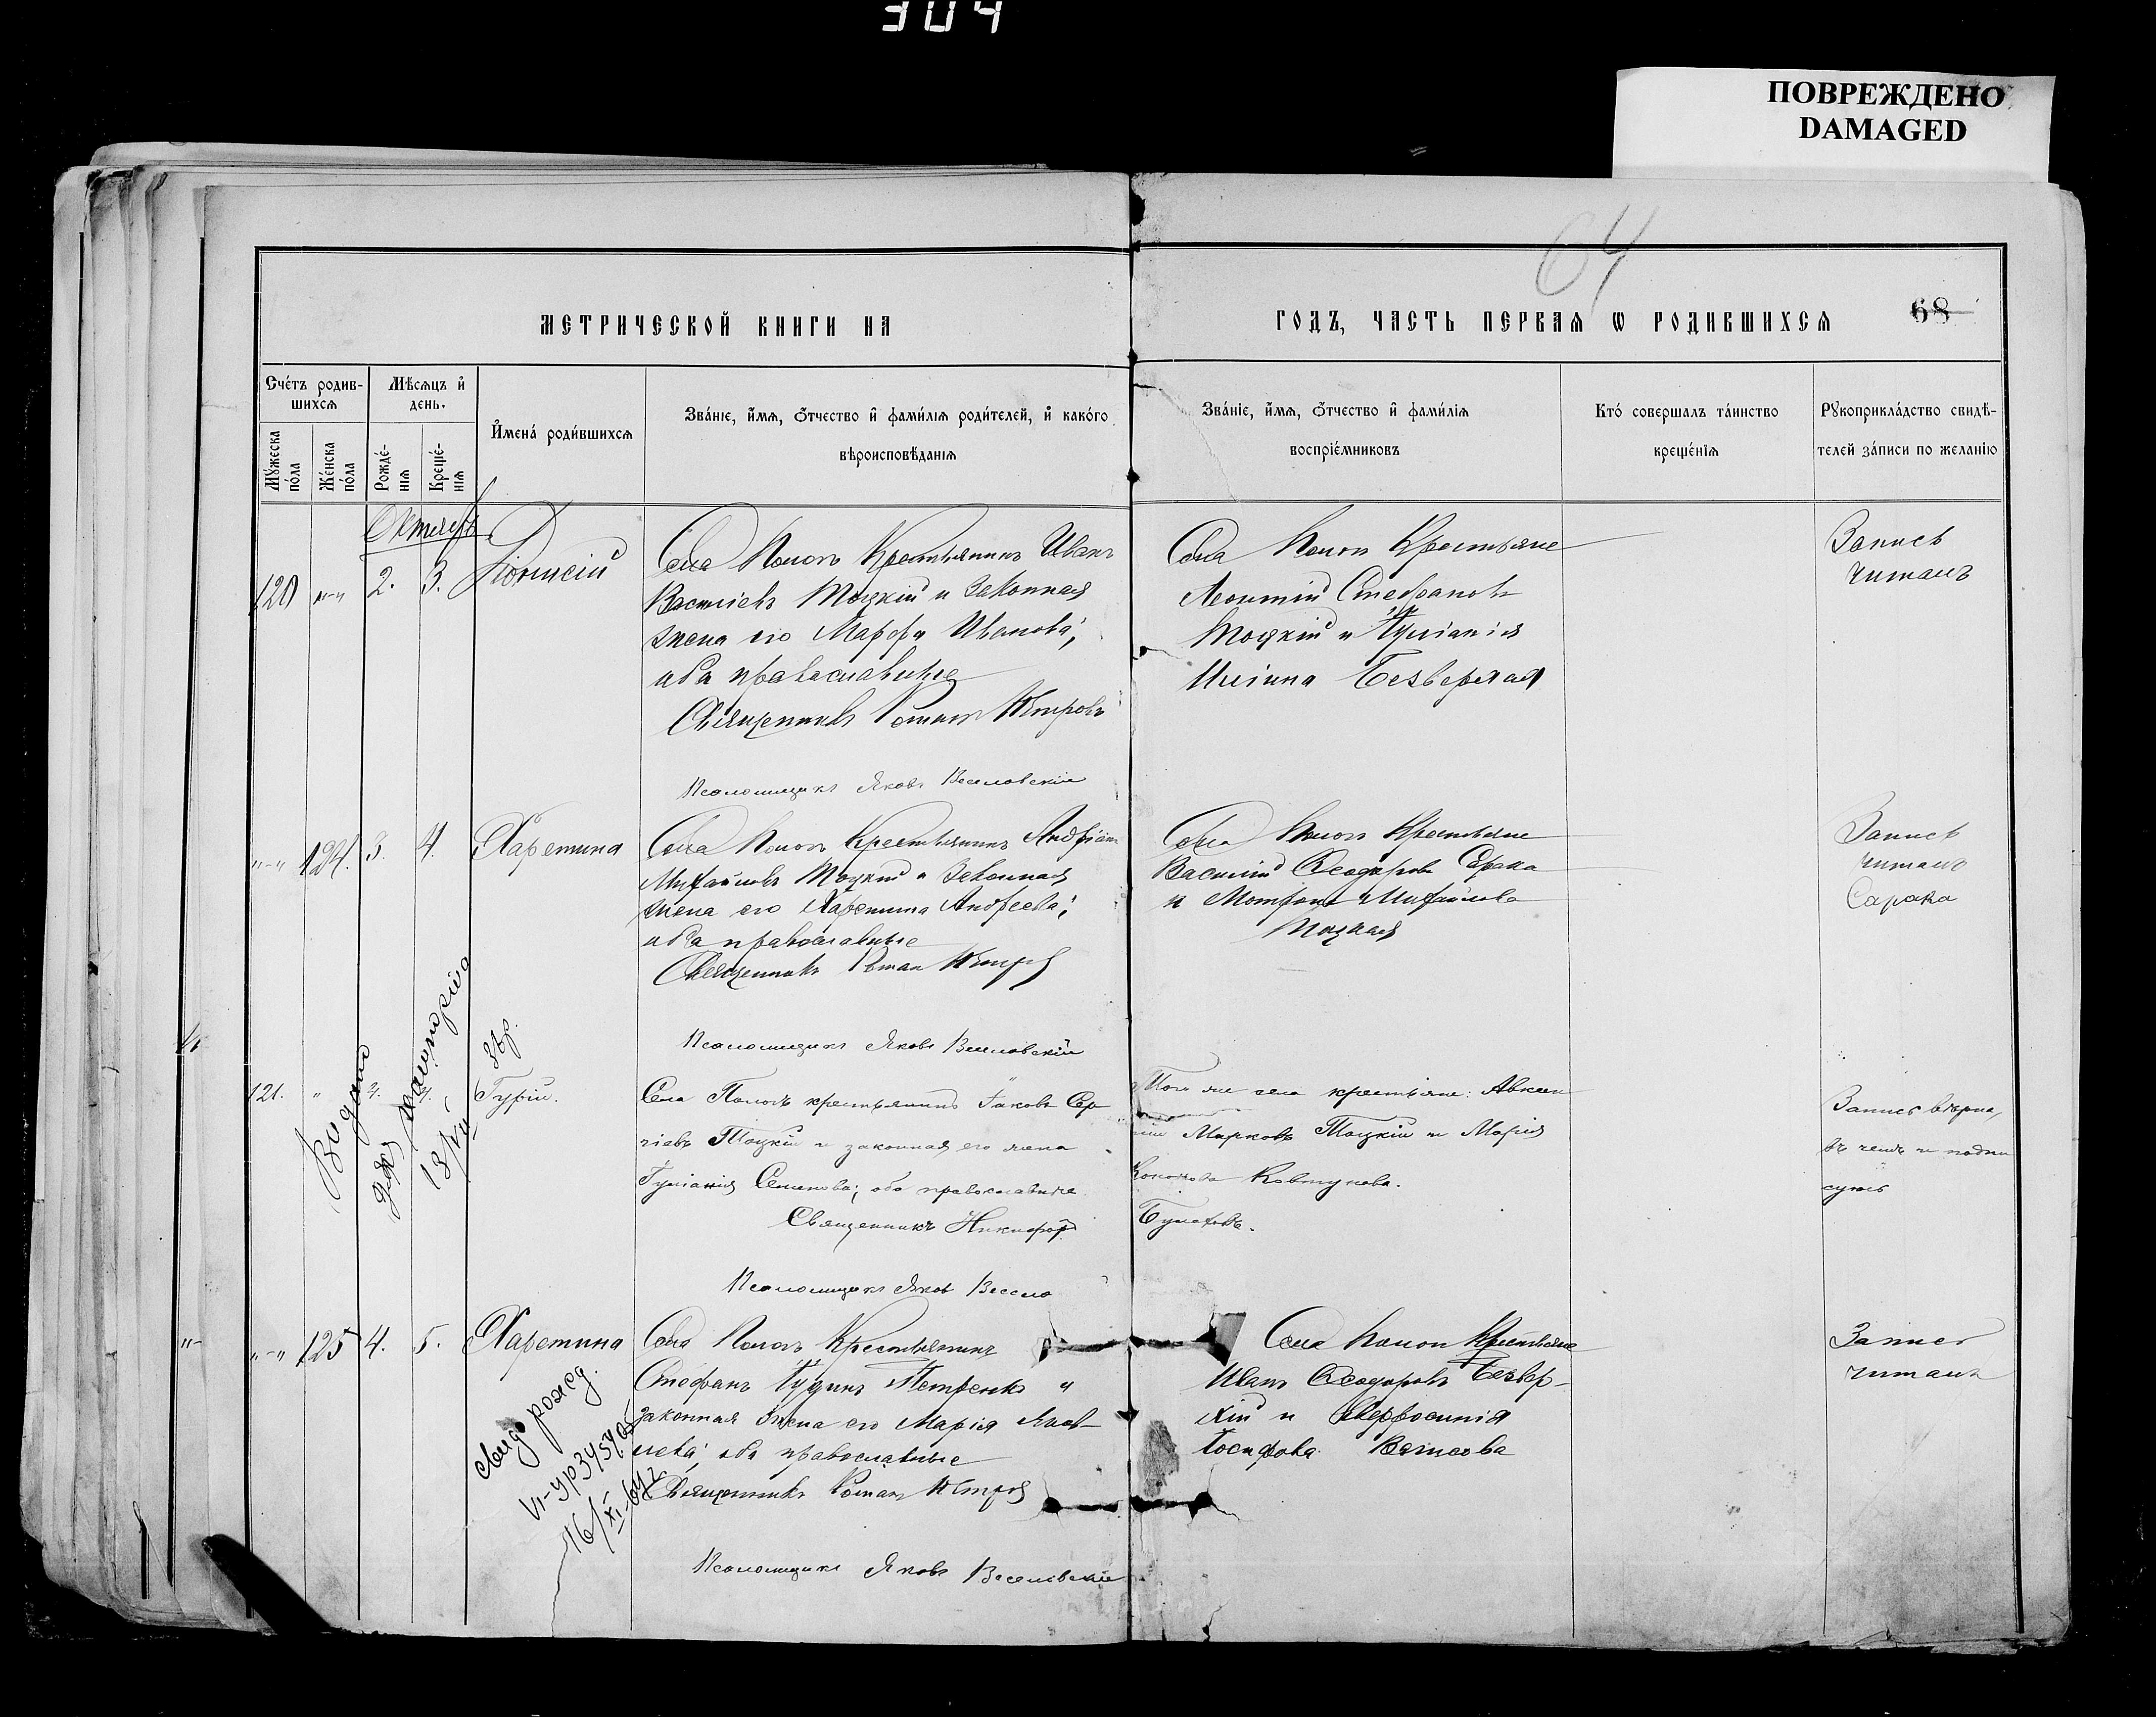 304
ПОВРЕЖДЕНО
DAMAGED
64
МЕТРИЧЕСКОЙ КНИГИ НА
ГОДЪ, ЧАСТЬ ПЕРВАЯ Ѡ РОДИВШИХСЯ
68
Счетъ родив-
шихся
Мѣсяцъ и
день.
Мужеска
пола
Женска
пола
Рожде-
нія
Креще-
нія
Имена родившихся
Званіе, имя, отчество и фамилія родителей, и какого
вѣроисповѣданія
Званіе, имя, отчество и фамилія
воспріемниковъ
Кто совершалъ таинство
крещенія
Рукоприкладство свидѣ-
телей записи по желанію
Октябрь
120 "-" 2. 3. Діонисій
Села Пологъ Крестьянинъ Иванъ
Василіевъ Тоцкій и законная
жена его Марфа Иванова;
оба православные
Священникъ Роман Петровъ
Псаломщикъ Яковъ Веселовскій
Села Пологъ Крестьяне
Леонтій Стефановъ
Тоцкій и Іуліанія
Безверхая
Запись
читалъ
"-" 124. 3. 4. Харитина
Села Пологъ Крестьянинъ Андріанъ
Михайловъ Тоцкій и Законная
жена его Харитина Андреева;
оба православные
Священникъ Роман Петров
Псаломщикъ Яковъ Веселовскій
Села Пологъ Крестьяне
Василій Феодоровъ
и Матрона Михайлова
Тоцкая
Запись
читалъ
Сарака
Выдано
18/VII
121. " 4. 4. Гурій.
Села Пологъ крестьянинъ Іаковъ Сер-
гіевъ Тоцкій и законная его жена
Іуліанія Семенова; оба православные.
Священникъ Никифоръ
Псаломщикъ Яковъ Весело
Того же села крестьяне: Авксен
тій Марковъ Тоцкій и Марія
Ковтунова.
Запись вѣрна,
въ чемъ и подпи
суюсь
"-" 125 4. 5. Харитина
Села Пологъ Крестьянинъ
Стефанъ Іудинъ Петренко и
законная жена его Марія Яков-
лева; оба православные
Священникъ Роман Петров
Псаломщикъ Яковъ Веселовскій
Села Пологъ Крестьяне
Иванъ Феодоровъ Безвер-
хій и Евфросинія
Іосифова
Запись
читалъ
Свид. рожд.
VI-УР 345405
16/XI-64г